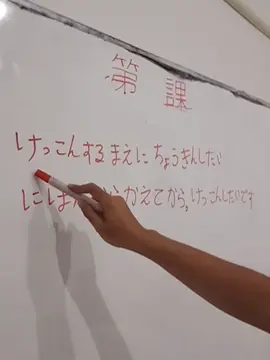 第 課
けっこんするまえに ちょうきんしたい
かえてから, けっこんしたいです